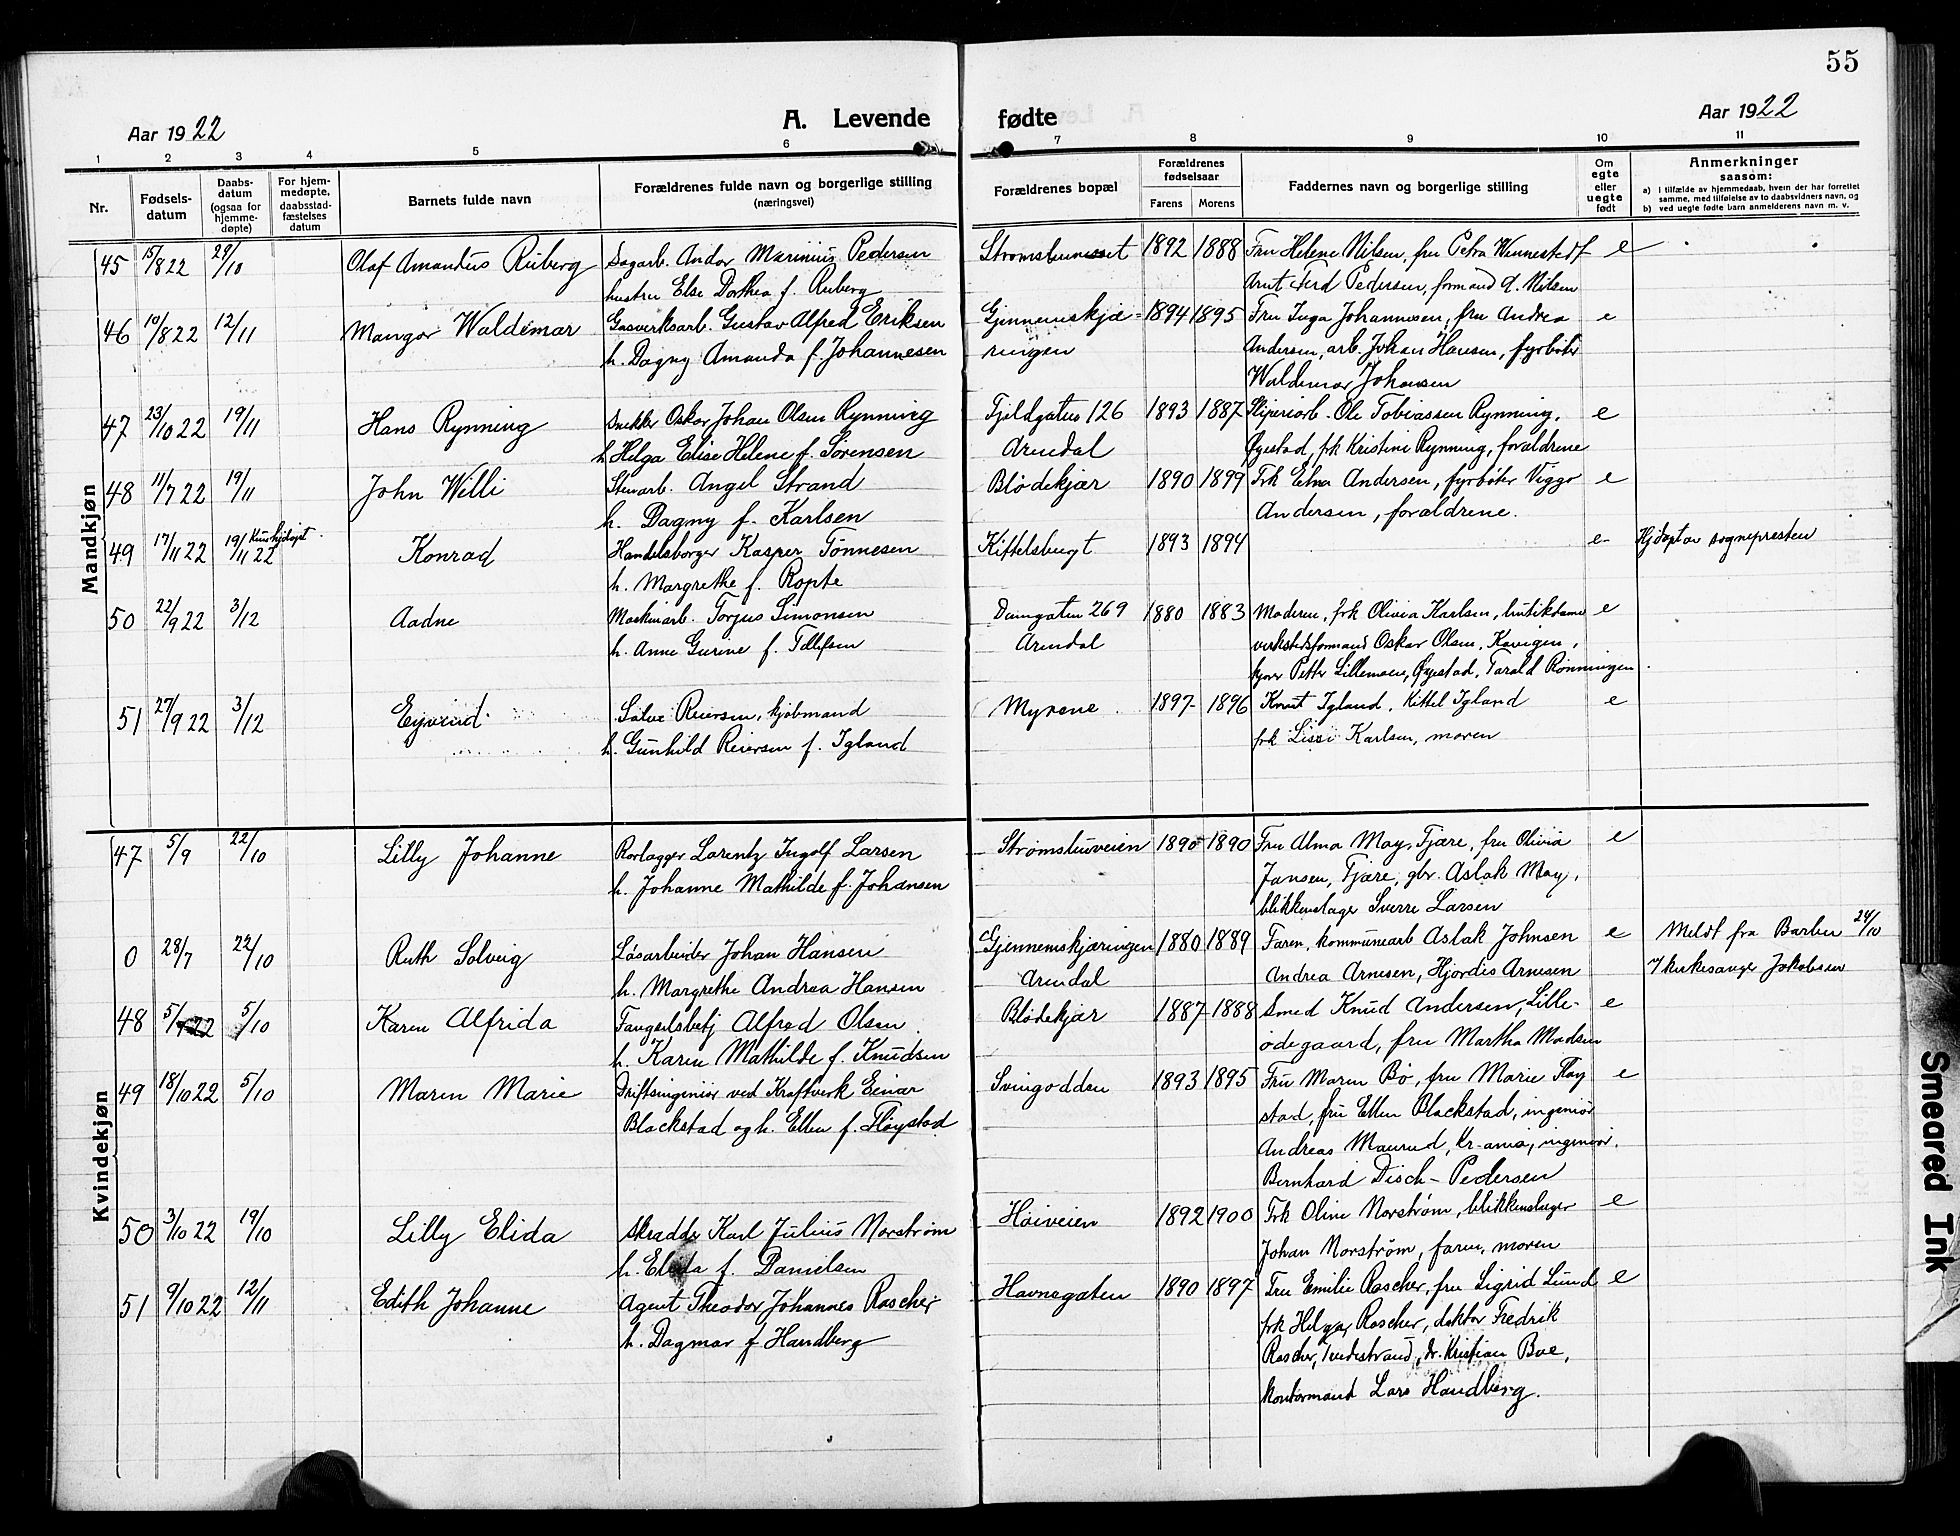 55
Aar 1922
A. Levende fødte
Aar 1922
1 2 3 4 5 6 7 8 9 10 11
Nr.
Fødsels-
datum
Daabs-
datum
(ogsaa for
hjemme-
døpte)
For hjem-
medøpte,
daabsstad-
fæstelses
datum
Barnets fulde navn
Forældrenes fulde navn og borgerlige stilling
(næringsvei)
Forældrenes bopæl
Forældrenes
fødselsaar
Farens
Morens
Faddernes navn og borgerlige stilling
Om
egte
eller
uegte
født
Anmerkninger
saasom:
a) i tilfælde av hjemmedaab, hvem der har forrettet
samme, med tilføielse av to daabsvidners navn, og
b) ved uegte fødte barn anmelderens navn m. v.
Mandkjøn
45 15/8 22 29/10 Olaf Amandus Ruberg Sagarb. Andor Marinius Pedersen Strømsbunesset 1892 1888 Fru Helene Nilsen, fru Petra Wennestedf e
hustru Else Dorthea f. Ruberg Arnt Ferd Pedersen, formand d. Nilsen
46 10/8 22 12/11 Mangor Waldemar Gasverksarb. Gustav Alfred Eriksen Gjennemskjæ- 1894 1895 Fru Inga Johannesen, fru Andrea e
h. Dagny Amanda f. Johannesen ringen Andersen, arb. Johan Hansen, fyrbøter
Waldemar Johansen
47 23/10 22 19/11 Hans Rynning Snekker Oskar Johan Olsen Rynning Fjeldgaten 126 1893 1887 Sliperiarb. Ole Tobiassen Rynning, e
h Helga Elise Helene f. Sørensen Arendal Øyestad, frk Kristine Rynning, forældrene
48 11/7 22 19/11 John Willi Stenarb. Angel Strand Blødekjær 1890 1899 Frk Edna Andersen, fyrbøter Viggo e
h. Dagmy f. Karlsen Andersen, forældrene.
49 17/11 22 19/11 22 Konrad Handelsborger Kasper Tønnesen Kittelsbugt 1893 1894 e Hjdøpt av sognepresten
h. Margrethe f. Ropte
50 22/9 22 3/12 Aadne Maskinarb. Torjus Simonsen Damgaten 269 1880 1883 Moderen, frk Olivia Karlsen, butikdame e
h. Anne Gurine f. Tellefsen Arendal verkstedsformand Oskar Olsen, Kavigen,
kjører Petter Lillemoen, Øyestad, Tarald Rønningen
51 27/9 22 3/12 Eyvind Salve Reiersen, kjøbmand Myrene 1897 1896 Knut Igland, Kittel Igland e
h. Gunhild Reiersen f. Igland frk Lissi Karlsen, moren
Kvindekjøn
47 5/9 22/10 Lilly Johanne Rørlægger Lorentz Ingolf Larsen Strømsbuveien 1890 1890 Fru Alma May, Tjære, fru Olivia e
h. Johanne Mathilde f. Johansen Jansen, Tjære, gbr. Aslak May,
blikkenslager Sverre Larsen
0 28/7 22/10 Ruth Solveig Løsarbeider Johan Hansen Gjennemskjæringen 1880 1889 Faren, kommunearb Aslak Johnsen e Meldt fra Barbu 24/10
h. Margrethe Andrea Hansen Arendal Andrea Arnesen, Hjørdis Arnesen v/ kirkesanger Jakobsen
48 5/7 22 5/10 Karen Alfrida Fængselsbetj Alfred Olsen Blødekjær 1887 1888 Smed Knud Andersen, Lille- e
h. Karen Mathilde f. Knudsen ødegaard, fru Martha Madsen
49 18/10 22 5/10 Maren Marie Driftsingeniør ved Kraftverk Einar Svingodden 1893 1895 Fru Maren Bø, fru Marie Fløy e
Blackstad og h. Ellen f. Fløystad stad, fru Ellen Blackstad, ingeniør
Andreas Maurud, Kr-ania, ingeniør
Bernhard Disch-Pedersen
50 3/10 22 19/10 Lilly Elida Skrædder Karl Julius Norstrøm Høiveien 1892 1900 Frk Oline Norstrøm, blikkenslager e
h. Elida f. Danielsen Johan Norstrøm, faren, moren
51 9/10 22 12/11 Edith Johanne Agent Theodor Johannes Roscher Havnegaten 1890 1897 Fru Emilie Roscher, fru Sigrid Lund e
h. Dagmar f Handberg frk Helga Roscher, doktor Fredrik
Roscher, Tvedestrand, dr. Kristian Boe,
kontormand Lars Handberg.
Smeared Ink